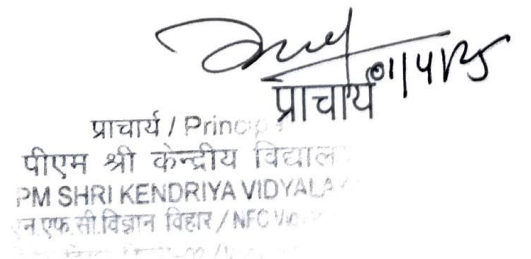 01/4/25
प्राचार्य
प्राचार्य / Princip
पीएम श्री केन्द्रीय विद्याल
PM SHRI KENDRIYA VIDYALA
न.एफ.सी.विज्ञान विहार / NFC